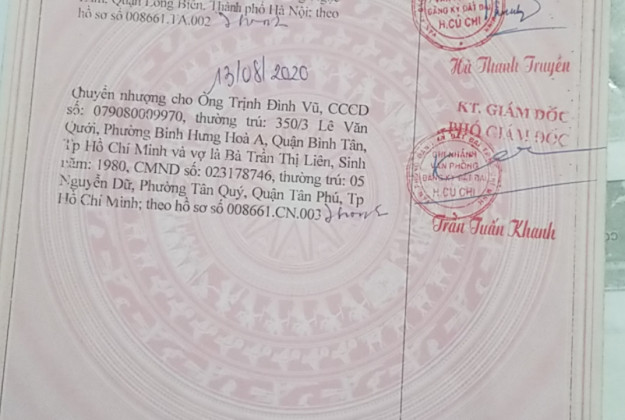 Quận Long Biên, Thành phố Hà Nội; theo
hồ sơ số 008661.TA.002
ĐĂNG KÝ ĐẤT ĐAI
H.CỦ CHI
Hà Thanh Truyền
13/08/2020
Chuyển nhượng cho Ông Trịnh Đình Vũ, CCCD
số: 079080009970, thường trú: 350/3 Lê Văn
Qưới, Phường Bình Hưng Hoà A, Quận Bình Tân,
Tp Hồ Chí Minh và vợ là Bà Trần Thị Liên, Sinh
năm: 1980, CMND số: 023178746, thường trú: 05
Nguyễn Dữ, Phường Tân Quý, Quận Tân Phú, Tp
Hồ Chí Minh; theo hồ sơ số 008661.CN.003
KT. GIÁM ĐỐC
PHÓ GIÁM ĐỐC
CHI NHÁNH
VĂN PHÒNG
ĐĂNG KÝ ĐẤT ĐAI
H.CỦ CHI
Trần Tuấn Khanh